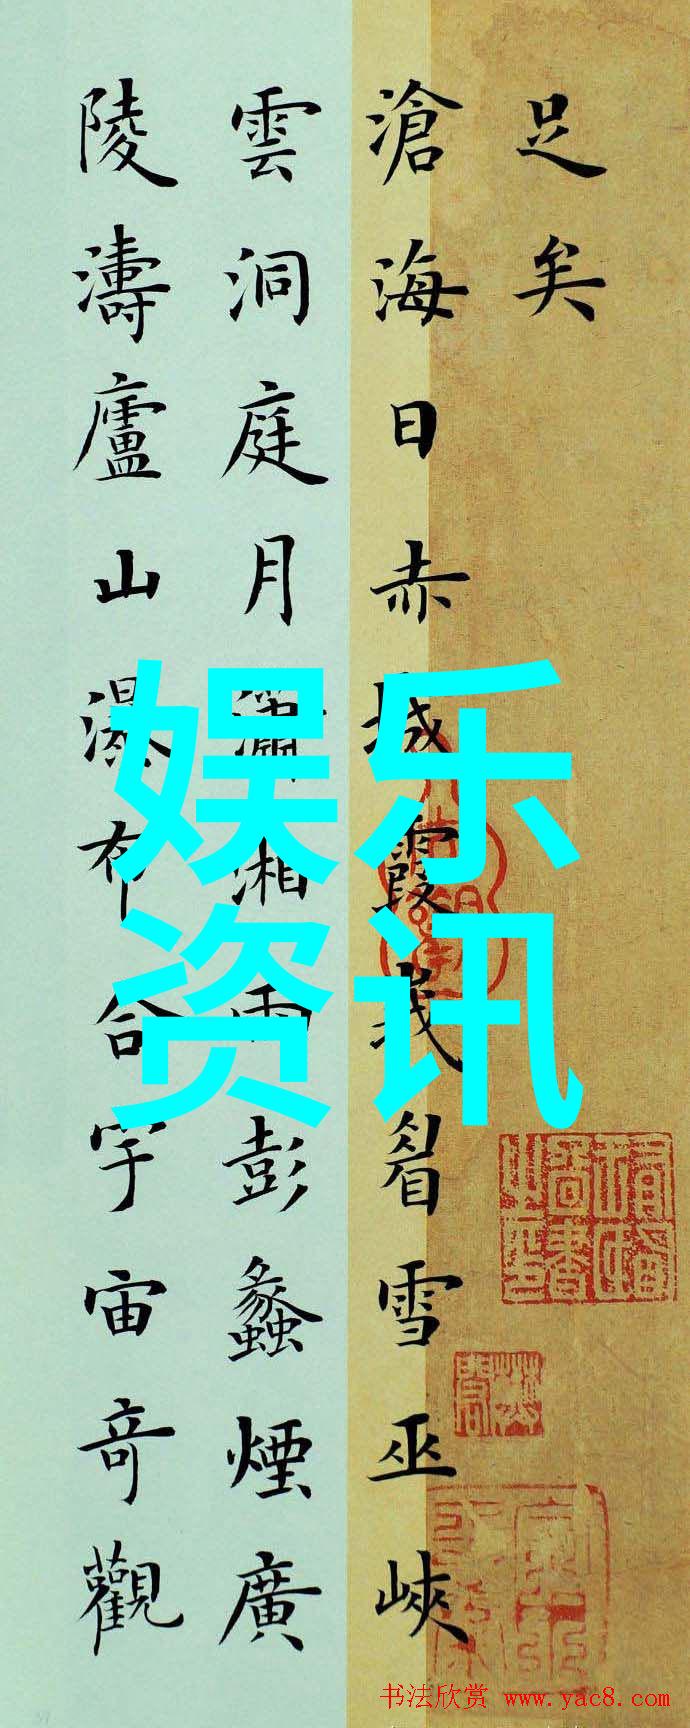 足矣
滄海日赤城霞峩睂雪巫峽
雲洞庭月瀟湘雨彭蠡煙廣
陵濤廬山瀑布合宇宙奇觀
娱乐
资讯
书法欣赏 www.yac8.com